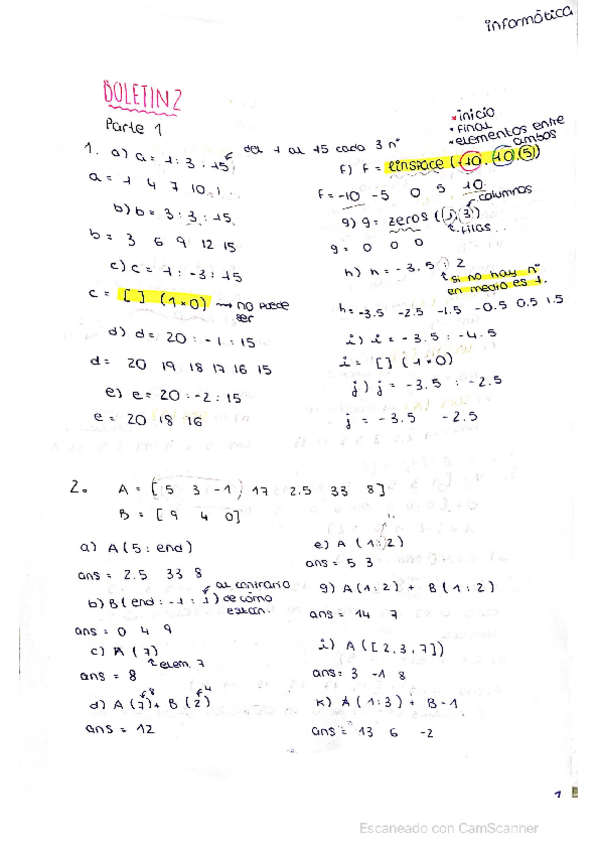 informática
BOLETIN 2
Parte 1
1. a) a = 1 : 3 : 15 del 1 al 15 cada 3 nº
a = 1 4 7 10
b) b = 3 : 3 : 15
b = 3 6 9 12 15
c) c = 1 : -3 : 15
c = [ ] (1×0) → no puede ser
d) d = 20 : -1 : 15
d = 20 19 18 17 16 15
e) e = 20 : -2 : 15
e = 20 18 16
* inicio
• final
• elementos entre ambos
f) f = linspace (-10, 10, 5)
f = -10 -5 0 5 10
g) g = zeros (1, 3) columnas
filas
g = 0 0 0
h) h = -3.5 : 2
si no hay nº
en medio es 1.
h = -3.5 -2.5 -1.5 -0.5 0.5 1.5
i) i = -3.5 : -4.5
i = [ ] (1×0)
j) j = -3.5 : -2.5
j = -3.5 -2.5
2. A = [5 3 -1 17 2.5 33 8]
B = [9 4 0]
a) A (5 : end)
ans = 2.5 33 8
b) B (end : -1 : 1) al contrario de cómo están.
ans = 0 4 9
c) A (7)
elem. 7
ans = 8
d) A (7) + B (2)
8 4
ans = 12
e) A (1 : 2)
ans = 5 3
g) A (1 : 2) + B (1 : 2)
ans = 14 7
i) A ([2, 3, 7])
ans = 3 -1 8
k) A (1 : 3) + B - 1
ans = 13 6 -2
1
Escaneado con CamScanner